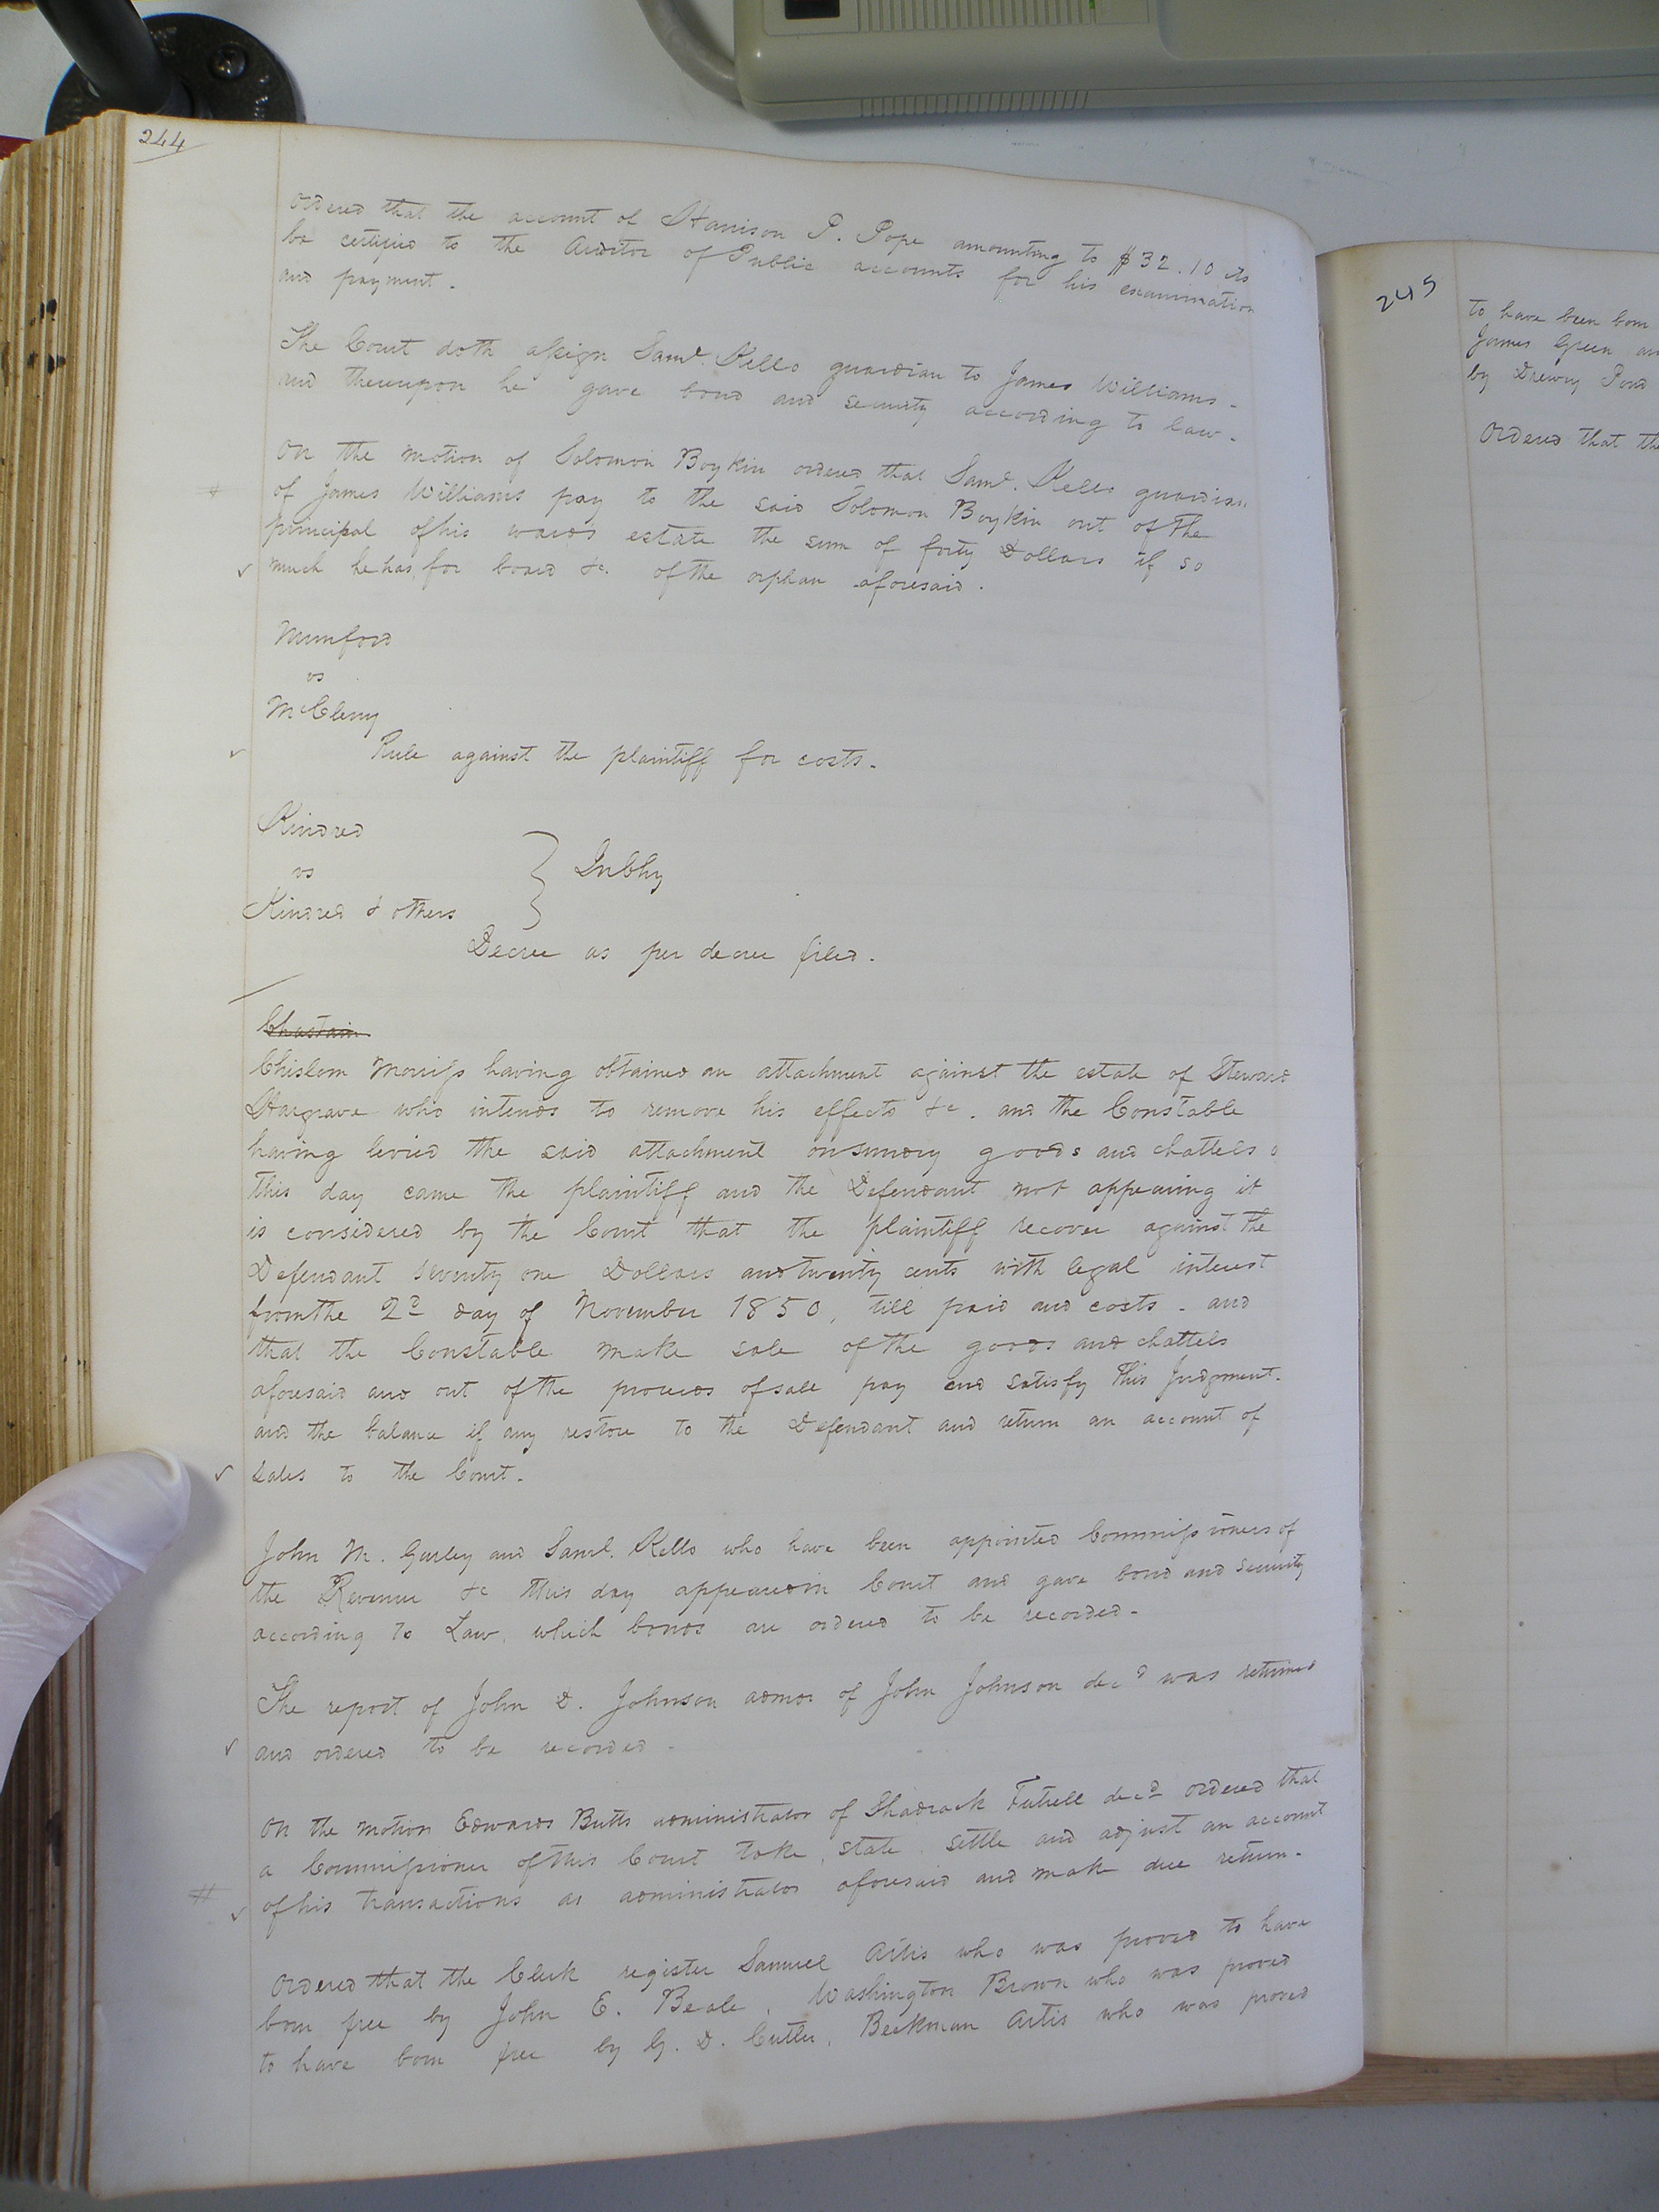 244
Ordered that the account of Harrison P. Pope amounting to $32.10 cts
be certified to the Auditor of Public accounts for his examination
and payment.
The Court doth assign Saml. Kello guardian to James Williams -
and thereupon he gave bond and security according to law -
On the motion of Solomon Boykin ordered that Saml. Kello guardian
of James Williams pay to the said Solomon Boykin out of the
principal of his wards estate the sum of forty Dollars if so
much he has, for board &c. of the orphan aforesaid.
Mumford
vs
McCleny
Rule against the plaintiff for costs.
Kindred
vs
Kindred & others
} In Chy
Decree as per decree filed.
Chastain
Chislom Moriss having obtained an attachment against the estate of Steward
Hargrave who intends to remove his effects &c. and the Constable
having levied the said attachment on sundry goods and chattels
this day came the plaintiff and the Defendant not appearing it
is considered by the Court that the plaintiff recover against the
Defendant seventy one Dollars and twenty cents with legal interest
from the 2d day of November 1850, till paid and costs - and
that the Constable make sale of the goods and chattels
aforesaid and out of the proceeds of sale pay and satisfy this Judgment.
and the balance if any restore to the Defendant and return an account of
sales to the Court.
John M. Gurley and Saml. Kello who have been appointed Commissioners of
the Revenue &c this day appeared in Court and gave bond and security
according to Law, which bonds are ordered to be recorded -
The report of John D. Johnson admor of John Johnson decd was returned
and ordered to be recorded -
On the motion Edwards Butts administrator of Shadrack Futrell decd ordered that
a Commissioner of this Court take, state, settle and adjust an account
# of his transactions as administrator aforesaid and make due return.
Ordered that the Clerk register Samuel Artis who was proved to have
born free by John E. Beale, Washington Brown who was proved
to have born free by G. D. Cutler, Beekman Artis who was proved
245
to have been born
James Green an
by Drewry Pond
Ordered that the